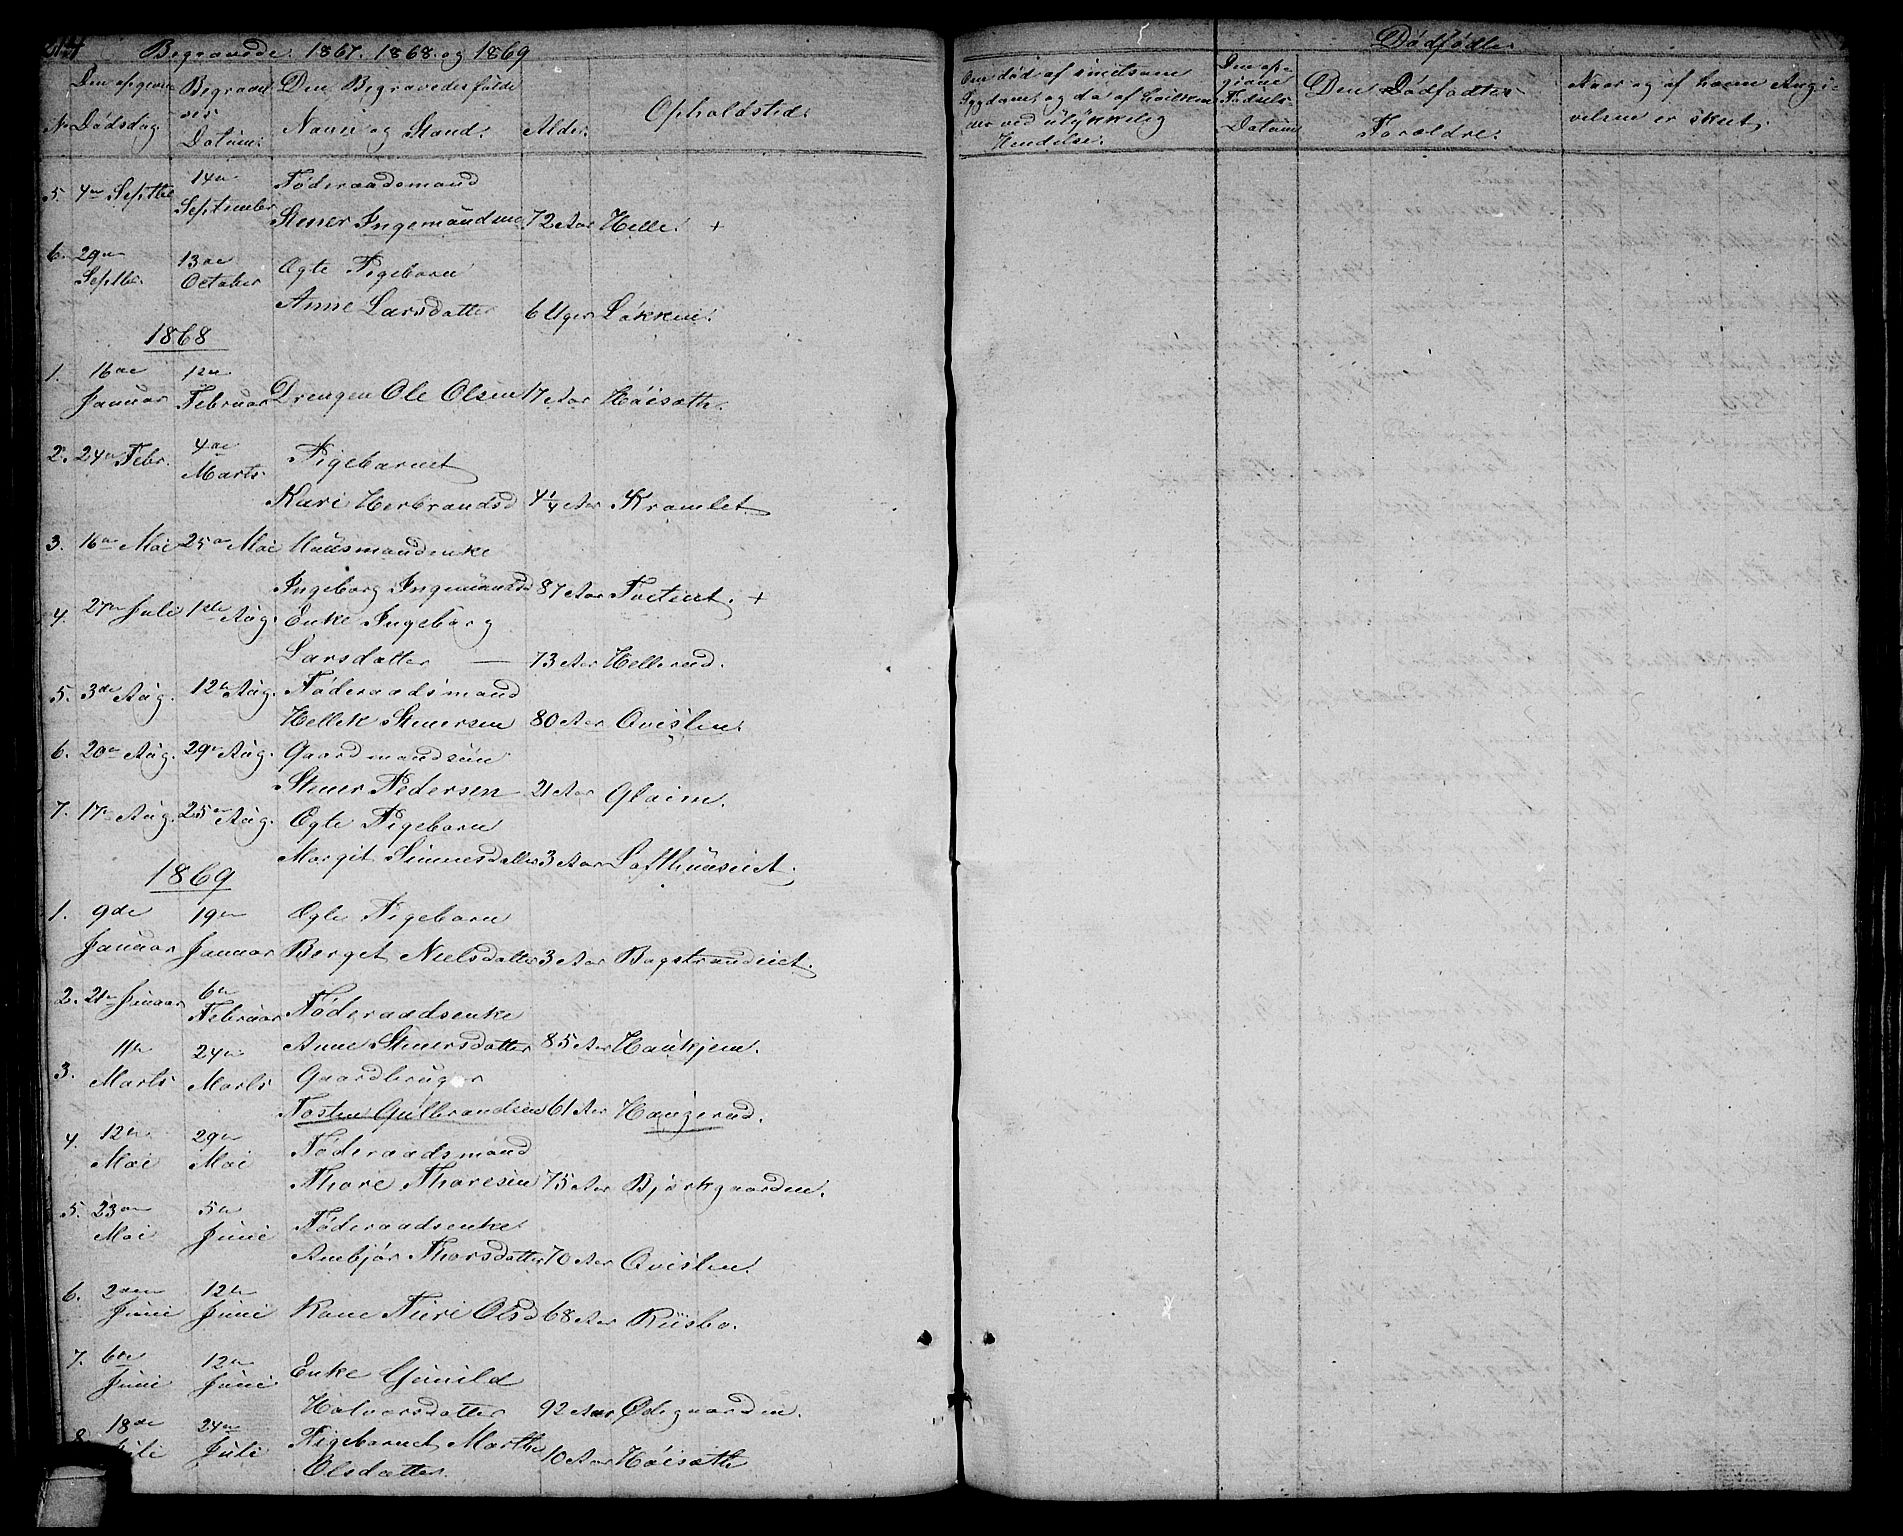 Begravede 1867. 1868. og 1869
No
Den opgivne Dødsdag
Begravel
ses
Datum.
Den Begravedes fulde
Navn og Stand.
Alder.
Opholdsted.
Om død af smitsom
Sygdom, og da af hvilken
eller ved ulykkelig
Hendelse.
Dødfødte.
Den op
givne
Fødsels
Datum
Den Dødfødtes
Forældre.
Naar og af hvem Angi-
velsen er skeet.
5. 4de Septbr 14de September Føderaadsmand
Stener Ingemundsen 72 Aar Helle. +
6. 29de Septbr. 13de October Ægte Pigebarn
Anne Larsdatter 6 Uger Løkken.
1868
1. 16de Januar 12te Februar Drengen Ole Olsen 17 Aar Høisæth.
2. 24de Febr. 4de Marts Pigebarnet
Kari Herbrandsd 4 1/4 Aar Kramlet.
3. 16de Mai 25de Mai Huusmandenke
Ingeborg Ingemundsd 87 Aar +
4. 27de Juli 1ste Aug. Enke Ingeborg
Larsdatter — 73 Aar Hellerud.
5. 3de Aug. 12te Aug. Føderaadsmand
Hellek Stenersen 80 Aar Qvislen.
6. 20de Aug. 29de Aug. Gaardmandsøn
Stener Pedersen 21 Aar Glaim.
7. 17de Aug. 25de Aug. Ægte Pigebarn
Margit Simensdatter 3 Aar Lofthuuseiet.
1869
1. 9de Januar 19de Januar Ægte Pigebarn
Berget Nielsdatter 3 Aar Bagstrandeiet.
2. 21de Januar 6te Februar Føderaadsenke
Anne Stenersdatter 85 Aar Haukjem.
3. 11te Marts 24de Marts Gaardbruger
Tosten Gulbrandsen 61 Aar Haugerud.
4. 12te Mai 29de Mai Føderaadsmand
Thore Thoresen 75 Aar Bjørkgaarden.
5. 23de Mai 5te Juni Føderaadsenke
Ambjør Thorsdatter 70 Aar Qvislen.
6. 2den Juni 12te Juni Kone Turi Olsd 68 Aar Riisbo.
7. 6te Juni 12te Juni Enke Gunild
Halvorsdatter 92 Aar Ødegaarden.
8. 18de Juli 24de Juli Pigebarnet Marthe
Olsdatter. 10 Aar Høisæth